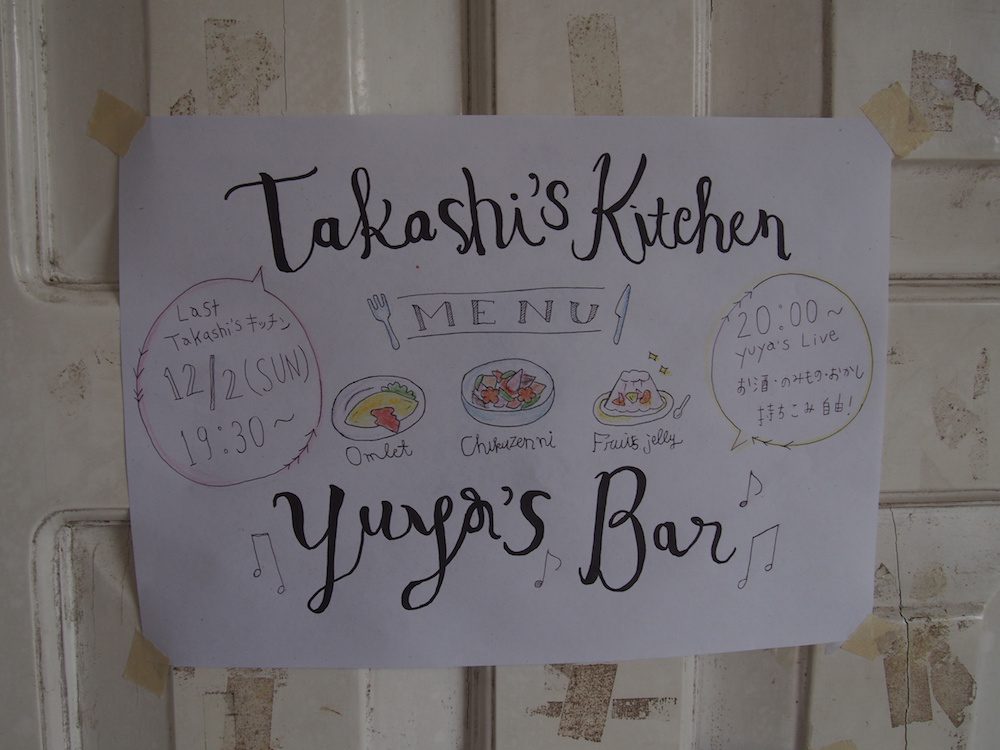 Takashi's Kitchen
MENU
Last
Takashi's キッチン
12/2(SUN)
19:30～
Omlet
Chikuzenni
Fruits jelly
20:00～
yuya's Live
お酒・のみもの・おかし
持ちこみ自由!
Yuya's Bar